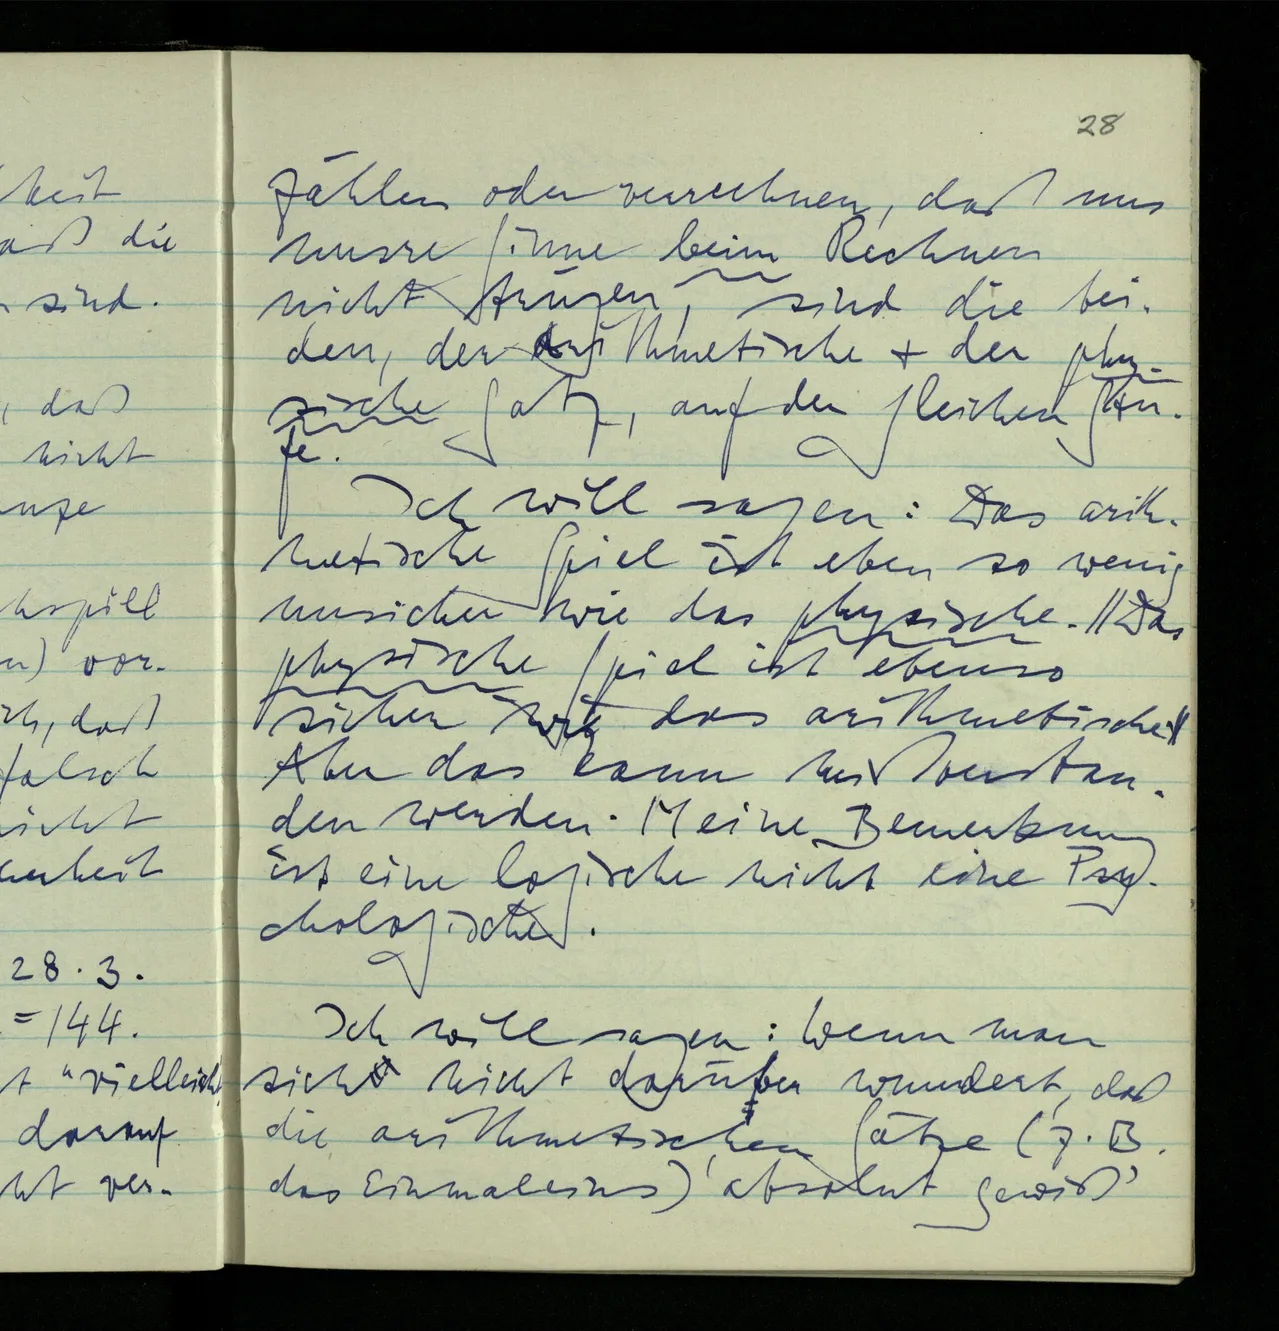 heit
aß die
sind.
, daß
nicht
hspiel
n) vor-
ich, daß
falsch
nicht
enheit
28.3.
=144.
t "vielleicht
darauf
cht ver-
28
zählen oder verrechnen, daß uns
unsre Sinne beim Rechnen
nicht trügen, sind die bei-
den, der arithmetische + der phy-
sische Satz, auf der gleichen Stu-
fe.
Ich will sagen: Das arith-
metische Spiel ist eben so wenig
unsicher wie das physische. //Das
physische Spiel ist ebenso
sicher wie das arithmetische//
Aber das kann mißverstan-
den werden. Meine Bemerkung
ist eine logische nicht eine Psy-
chologische.
Ich will sagen: Wenn man
sich nicht darüber wundert, daß
die arithmetischen Sätze (z.B.
das Einmaleins) 'absolut gewiß'